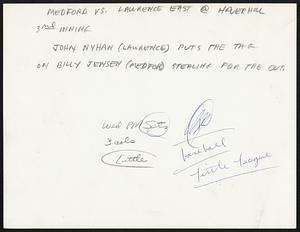 MEDFORD VS. LAWRENCE EAST @ HAVERHILL
3rd INNING
JOHN NYHAN (LAWRENCE) PUTS THE TAG
ON BILLY JENSEN (MEDFORD) STEALING FOR THE OUT.
Wed PM Sots
3 cols
Little
baseball
Little League